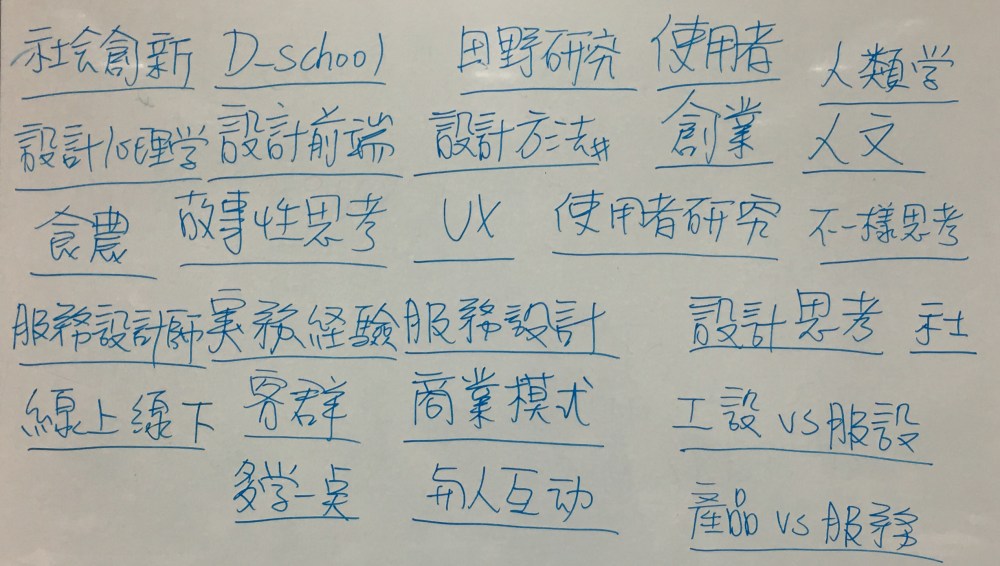 社会創新 D-school 田野研究 使用者 人類学
設計心理学 設計前端 設計方法 創業 人文
食農 故事性思考 UX 使用者研究 不一樣思考
服務設計師 実務経験 服務設計 設計思考 社
線上線下 客群 商業模式 工設 vs 服設
多学一点 与人互动 産品 vs 服務